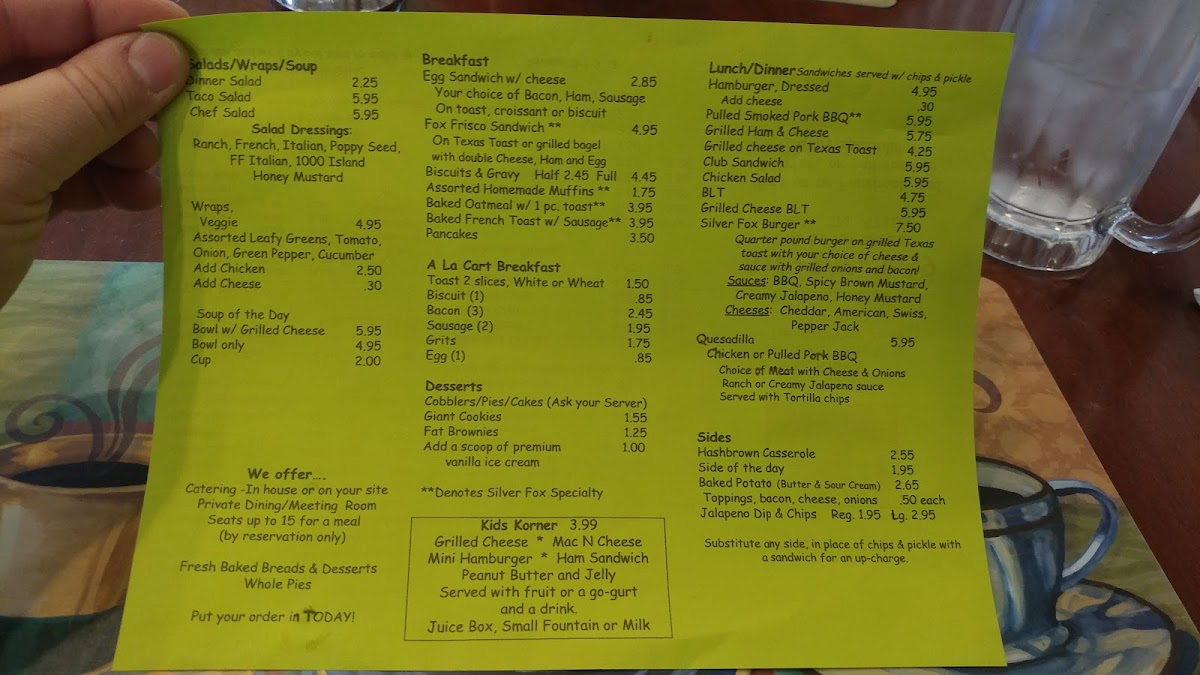 Salads/Wraps/Soup
Dinner Salad 2.25
Taco Salad 5.95
Chef Salad 5.95
Salad Dressings:
Ranch, French, Italian, Poppy Seed,
FF Italian, 1000 Island
Honey Mustard
Wraps,
Veggie 4.95
Assorted Leafy Greens, Tomato,
Onion, Green Pepper, Cucumber
Add Chicken 2.50
Add Cheese .30
Soup of the Day
Bowl w/ Grilled Cheese 5.95
Bowl only 4.95
Cup 2.00
We offer....
Catering -In house or on your site
Private Dining/Meeting Room
Seats up to 15 for a meal
(by reservation only)
Fresh Baked Breads & Desserts
Whole Pies
Put your order in TODAY!
Breakfast
Egg Sandwich w/ cheese 2.85
Your choice of Bacon, Ham, Sausage
On toast, croissant or biscuit
Fox Frisco Sandwich ** 4.95
On Texas Toast or grilled bagel
with double Cheese, Ham and Egg
Biscuits & Gravy Half 2.45 Full 4.45
Assorted Homemade Muffins ** 1.75
Baked Oatmeal w/ 1 pc. toast** 3.95
Baked French Toast w/ Sausage** 3.95
Pancakes 3.50
A La Cart Breakfast
Toast 2 slices, White or Wheat 1.50
Biscuit (1) .85
Bacon (3) 2.45
Sausage (2) 1.95
Grits 1.75
Egg (1) .85
Desserts
Cobblers/Pies/Cakes (Ask your Server)
Giant Cookies 1.55
Fat Brownies 1.25
Add a scoop of premium 1.00
vanilla ice cream
**Denotes Silver Fox Specialty
Kids Korner 3.99
Grilled Cheese * Mac N Cheese
Mini Hamburger * Ham Sandwich
Peanut Butter and Jelly
Served with fruit or a go-gurt
and a drink.
Juice Box, Small Fountain or Milk
Lunch/Dinner Sandwiches served w/ chips & pickle
Hamburger, Dressed 4.95
Add cheese .30
Pulled Smoked Pork BBQ** 5.95
Grilled Ham & Cheese 5.75
Grilled cheese on Texas Toast 4.25
Club Sandwich 5.95
Chicken Salad 5.95
BLT 4.75
Grilled Cheese BLT 5.95
Silver Fox Burger ** 7.50
Quarter pound burger on grilled Texas
toast with your choice of cheese &
sauce with grilled onions and bacon!
Sauces: BBQ, Spicy Brown Mustard,
Creamy Jalapeno, Honey Mustard
Cheeses: Cheddar, American, Swiss,
Pepper Jack
Quesadilla 5.95
Chicken or Pulled Pork BBQ
Choice of Meat with Cheese & Onions
Ranch or Creamy Jalapeno sauce
Served with Tortilla chips
Sides
Hashbrown Casserole 2.55
Side of the day 1.95
Baked Potato (Butter & Sour Cream) 2.65
Toppings, bacon, cheese, onions .50 each
Jalapeno Dip & Chips Reg. 1.95 Lg. 2.95
Substitute any side, in place of chips & pickle with
a sandwich for an up-charge.